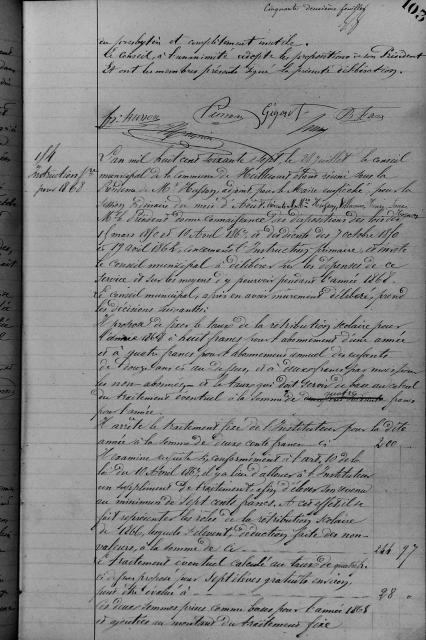 Cinquante deuxième feuillet
103
au presbytère et complètement inutile.
Le Conseil, à l'unanimité adopte les propositions de son Président
Et ont les membres présents signé la présente délibération.
Pierron Gigout
184
Instruction pre
pour 1868
L'an mil huit cent soixante sept, le 28 juillet le conseil
municipal de la commune de étant réuni sous la
Présidence de Mr adjoint pour le Maire empêché, pour la
session du mois d'Août
Mr le Président donne connaissance des dispositions des lois des
15 mars 1850 et 10 Avril 1867 et décrets des 7 octobre 1850
et 19 avril 1862, concernant l'Instruction primaire, et invite
le Conseil municipal à délibérer sur les dépenses de ce
service et sur les moyens d'y pourvoir pendant l'année 1868.
Le Conseil municipal, après en avoir mûrement délibéré, prend
les décisions suivantes:
Il propose de fixer le taux de la rétribution scolaire pour
l'année 1868 à huit francs pour l'abonnement d'une année
et à quatre francs pour l'abonnement annuel des enfants
de ans et au dessus, et à deux francs par mois pour
les non-abonnés, et le taux qui doit servir de base au calcul
du traitement éventuel à la somme de francs
pour l'année.
Il arrête le traitement fixe de l'Instituteur pour la dite
année à la somme de deux cents francs ci 200 "
Il examine ensuite si, conformément à l'art. 10 de la
loi du 10 Avril 1867, il y a lieu d'allouer à l'Instituteur
un supplément de traitement, afin d'élever son revenu
au minimum de sept cents francs. A cet effet il se
fait représenter les rôles de la rétribution scolaire
de 1866, lesquels s'élèvent, déduction faite des non-
valeurs, à la somme de ci 266 97
Le traitement éventuel calculé au taux de
ci dessus proposé, pour sept élèves gratuits environ,
peut être évalué à 28 "
Ces deux sommes prises comme bases pour l'année 1868
et ajoutées au montant du traitement fixe